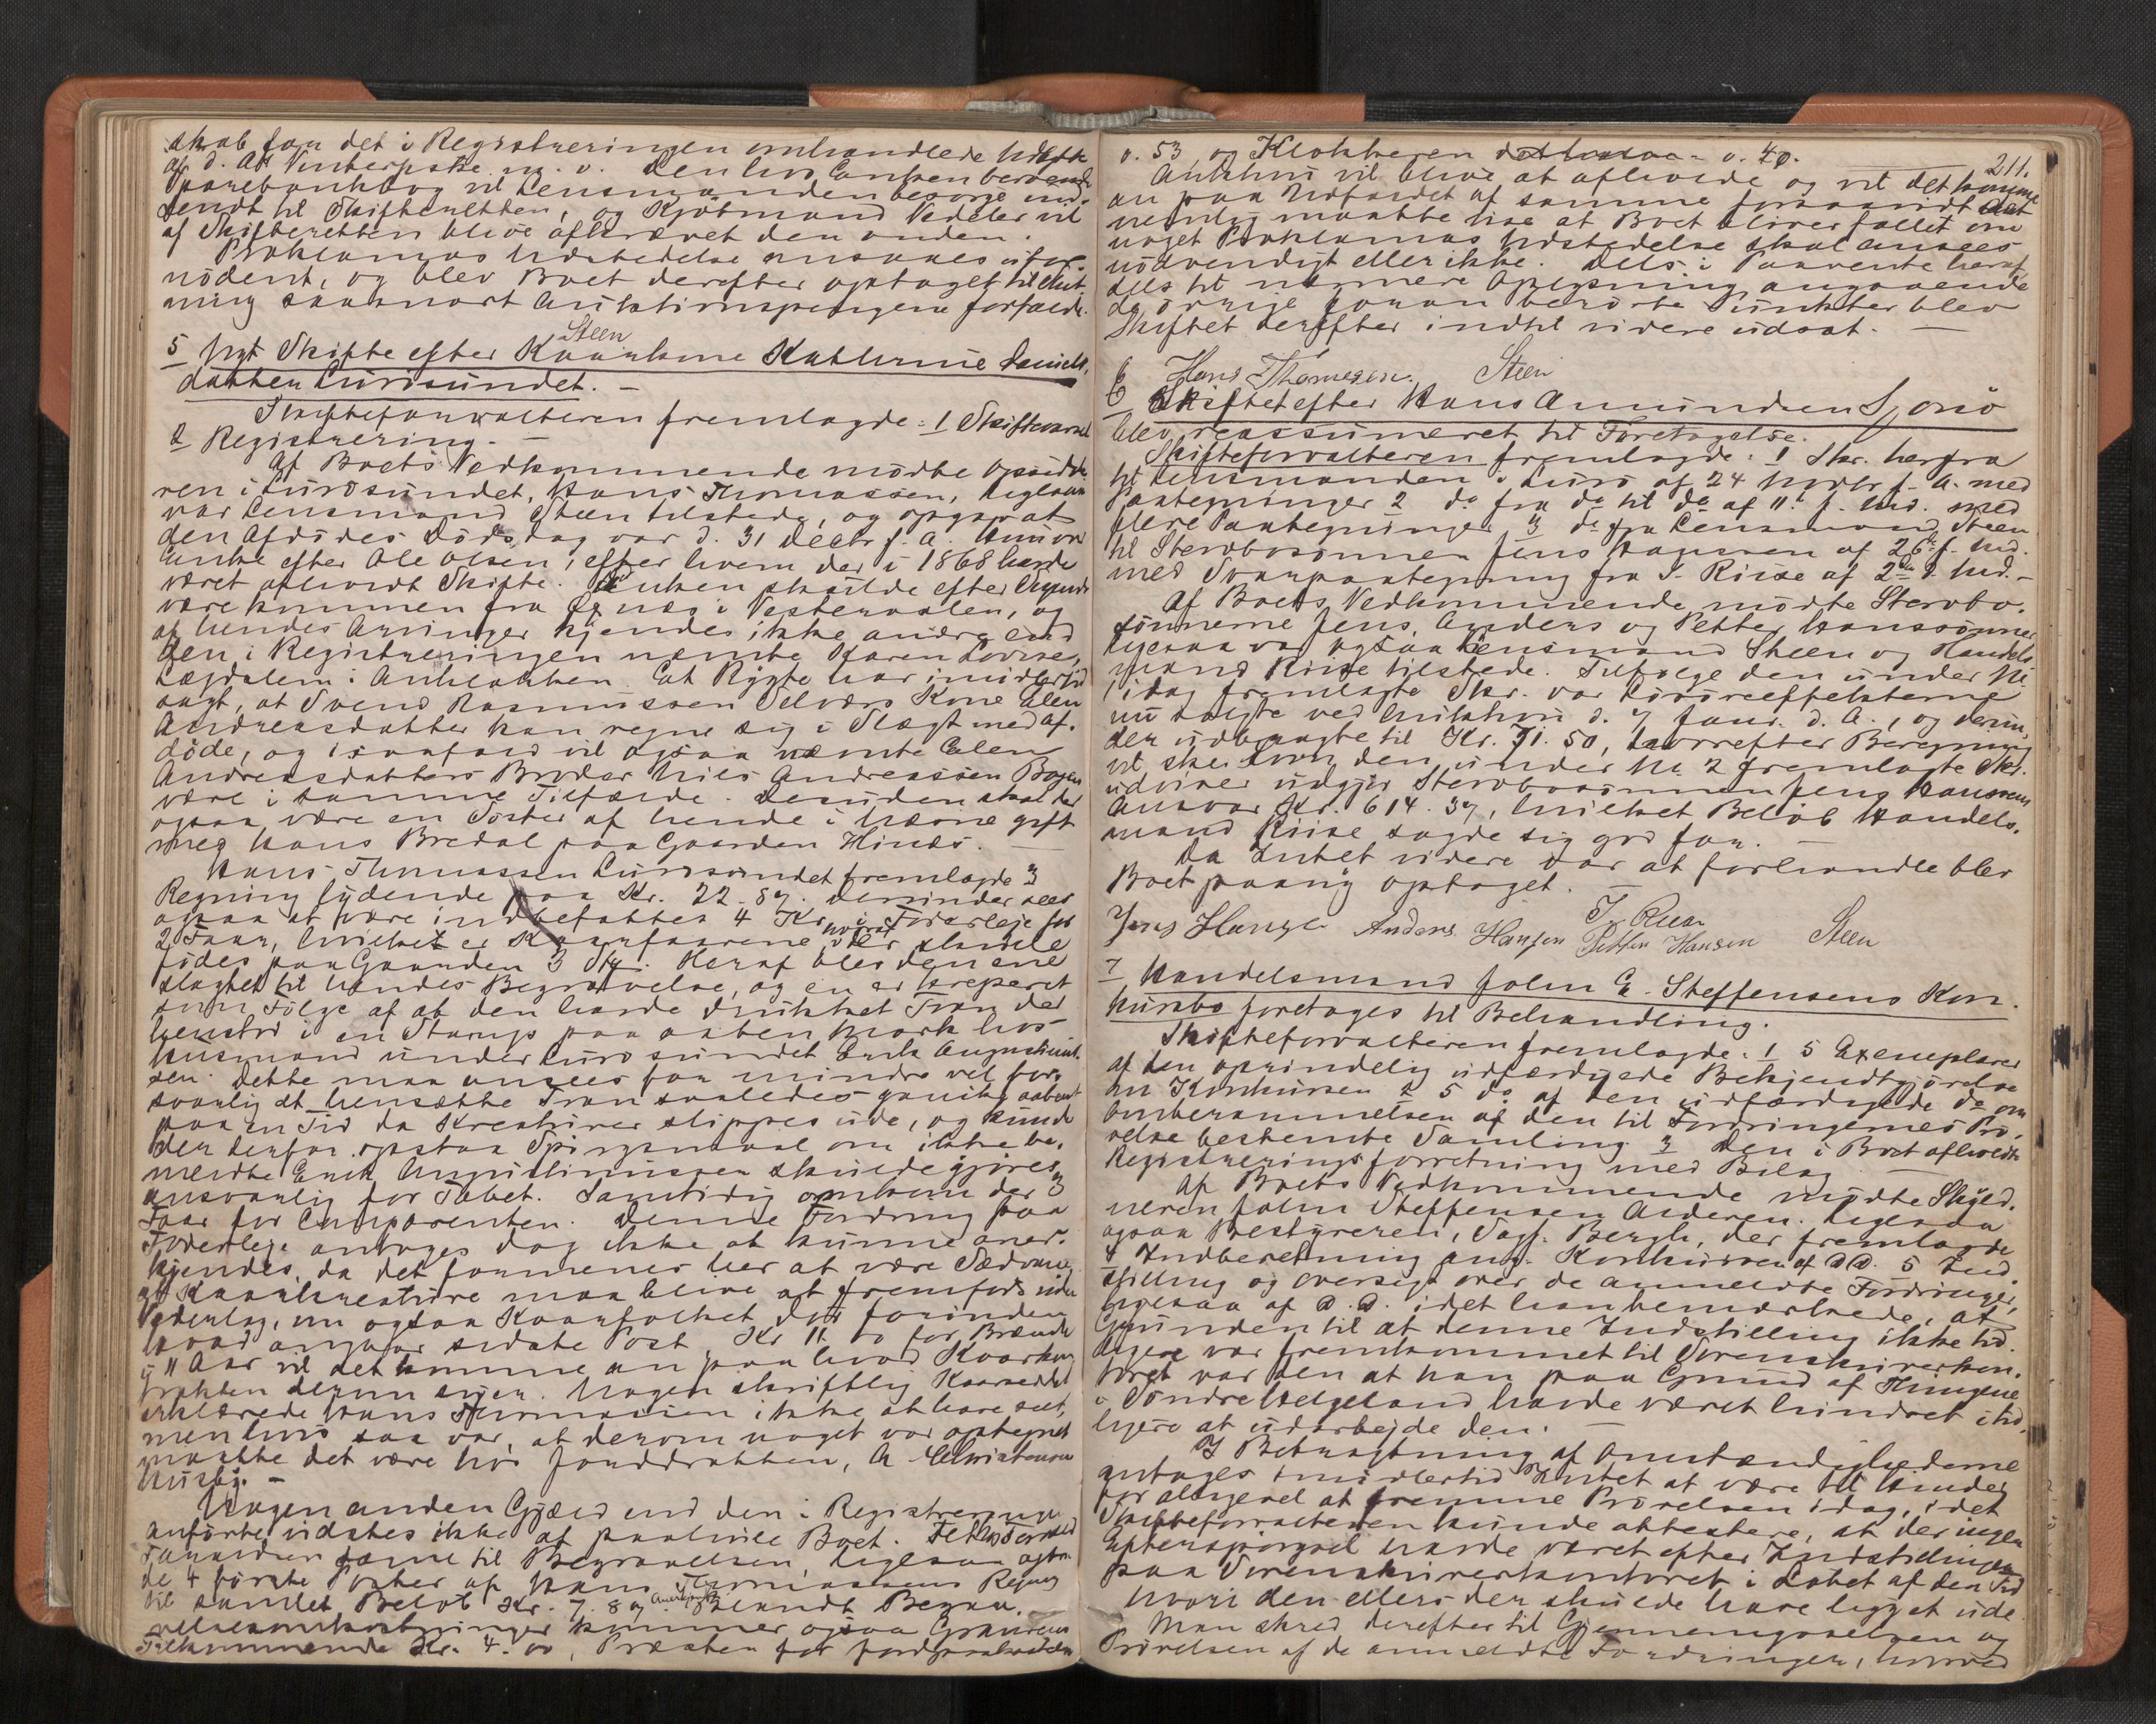 skab for det i Registreringen omhandlede
af d. A. m. v. Den hos Enken beroende
Sparebankbog vil Lensmanden besørge ind-
sendt til Skifteretten, og Kjøbmand Vedeler vil
af Skifteretten blive afkrævet den anden.
Proklamas Udstedelse ansaaes ufor-
nødent, og blev Boet derefter optaget til Slut-
ning saasnart Auktionspengene forfalde.
Steen
5 Nyt Skifte efter Kaarkone Kathrine Daniels-
datter Lurøsundet. -
Skifteforvalteren fremlagde: 1 Skiftevarsel
2 Registrering. -
Af Boets Vedkommende mødte Opsidde-
ren i Lurøsundet, Hans Thomassen, ligesom
var Lensmand Steen tilstede, og opgav at
den Afdødes Dødsdag var d. 31 Decbr f. A. Hun var
Enke efter Ole Olsen, efter hvem der i 1868 havde
været afholdt Skifte. Enken skulde efter Sigende
være kommen fra Øxnæs i Vesteraalen, og
af hendes Arvinger kjendes ikke andre end
den i Registreringen nævnte Karen Lovise,
Lægdslem i Anklakken. Et Rygte har imidlertid
sagt, at Svend Rasmussen Selværs Kone Elen
Andreasdatter kan regne sig i Slægt med Af-
døde, og i saafald vil ogsaa nævnte Elen
Andreasdatters Broder Nils Andreassen Bogen
være i samme Tilfælde. Desuden skal der
ogsaa være en Søster af hende i Næsne gift
med Hans Bredal paa Gaarden Hinds.
Hans Thomassen Lurøsundet fremlagde 3
Regning lydende paa Kr. 22-87. Derunder sees
ogsaa at være indbefattet 4 Kr i Foderleje for
2 Faar, hvilket er Kaarfaarene hvoraf der skulde
fødes paa Gaarden 3 Stk. Heraf blev den ene
slagtet til hendes Begravelse, og en er kreperet
som Følge af at den havde drukket Tran der
henstod i en Stamp paa aaben Mark hos
Husmand under Lurøsundet Enok Augustinus-
sen. Dette maa ansees for mindre vel for-
svarlig at hensætte Tran saaledes ganske aabent
paa en Tid da Kreaturer slippes ude, og kunde
der derfor opstaa Spørgsmaal om ikke be-
meldte Enok Augustinussen skulde gjøres
ansvarlig for Tabet. Samtidig omkom der 3
Faar for Comparenten. Denne Fordring paa
Foderleje antoges dog ikke at kunne aner-
kjendes, da det formenes her at være Sædvane
at Kaarkreature maa blive at fremføde uden
Vederlag, om ogsaa Kaarfolket dør forinden.
Hvad angaar sidste Post Kr 11.00 for Brænde
i 11 Aar vil det komme an paa hvad Kaarkon-
trakten derom siger. Nogen skriftlig Kaarseddel
erklærede Hans Thomassen ikke at have seet,
men hvis saa var, at derom noget var optegnet
maatte det være hos Jorddrotten, A Christensen
Husby. -
Nogen anden Gjæld end den i Registreringen
anførte vidstes ikke at paahvile Boet.
til Begravelsen, ligesaa ogsaa
de 4 første Poster af Hans Thomassens Regning
til samlet Beløb Kr. 7.87. Blandt Begra-
velsesomkostninger kommer ogsaa Graveren
tilkommende Kr. 4.00, Præsten for Jordpaakastelse
211.
v. 53, og Klokkeren v. 40.
Auktion vil blive at afholde og vil det komme
an paa Udfaldet af samme forsaavidt det
nemlig maatte vise at Boet bliver fallit om
noget Proklamas Udstedelse skal ansees
nødvendigt eller ikke. Dels i Paavente heraf
dels til nærmere Oplysning angaaende
de øvrige foran berørte Punkter blev
Skiftet derefter indtil videre udsat. -
Hans Thomesen. Steen
6 Skiftet efter Hans Amundsen Sjonø
blev reassumeret til Foretagelse.
Skifteforvalteren fremlagde: 1 Skr. herfra
til Lensmanden i Lurø af 24 Novbr f. A. med
Paategninger 2 do fra do til do af 11 f. Md. med
flere Paategninger 3 do fra Lensmand Steen
til Stervbosønnen Jens Hansen af 26 f. Md.
med Svarpaategning fra J. Riise af 2 d. Md. -
Af Boets Vedkommende mødte Stervbo-
sønnerne Jens, Anders og Petter Hanssønner
ligesaa var ogsaa Lensmand Steen og Handels-
mand Riise tilstede. Ifølge den under No
1 idag fremlagte Skr. var Løsøreeffekterne
nu solgte ved Auktion d. 7 Janr. d. A., og derun-
der udbragte til Kr. 71.50, hvorefter Beregning
vil ske Som den under No 2 fremlagte Skr.
udviser udgjør Stervbosønnen Jens Hansens
Ansvar Kr. 614.37, hvilket Beløb Handels-
mand Riise sagde sig god for. -
Da Intet videre var at forhandle blev
Boet paany optaget. -
Jens Hansen Anders Hansen J. Riise Petter Hansen Steen
7 Handelsmand John E. Steffensens Kon-
kursbo foretoges til Behandling.
Skifteforvalteren fremlagde: 1 5 Exemplarer
af den oprindelig udfærdigede Bekjendtgjørelse
om Konkursen 2 5 do af den udfærdigede do om
Omberammelsen af den til Fordringernes Prø-
velse bestemte Samling 3 Den i Boet afholdte
Registreringsforretning med Bilag. -
Af Boets Vedkommende mødte Skyld-
neren John Steffensen Alderen. Ligesaa
ogsaa Bestyreren, Sagf. Bergh, der fremlagde
4 Indberetning ang. Konkursen af D.D. 5 Ind-
stilling og Oversigt over de anmeldte Fordringer,
ligesaa af D.D. idet han bemærkede, at
Grunden til at denne Indstilling ikke tid-
ligere var fremkommet til Sorenskriverkon-
toret var den at han paa Grund af Thingene
i Søndre Helgeland havde været hindret i tid-
ligere at udarbejde den.
I Betragtning af Omstændighederne
antoges imidlertid Intet at være til Hinder
for alligevel at fremme Prøvelsen idag, idet
Skifteforvalteren kunde attestere, at der ingen
Efterspørgsel havde været efter Indstillingen
paa Sorenskriverkontoret i Løbet af den Tid
hvori den ellers der skulde have ligget ude.
Man skred derefter til Gjennemgaaelsen og
Prøvelsen af de anmeldte Fordringer, hvorved